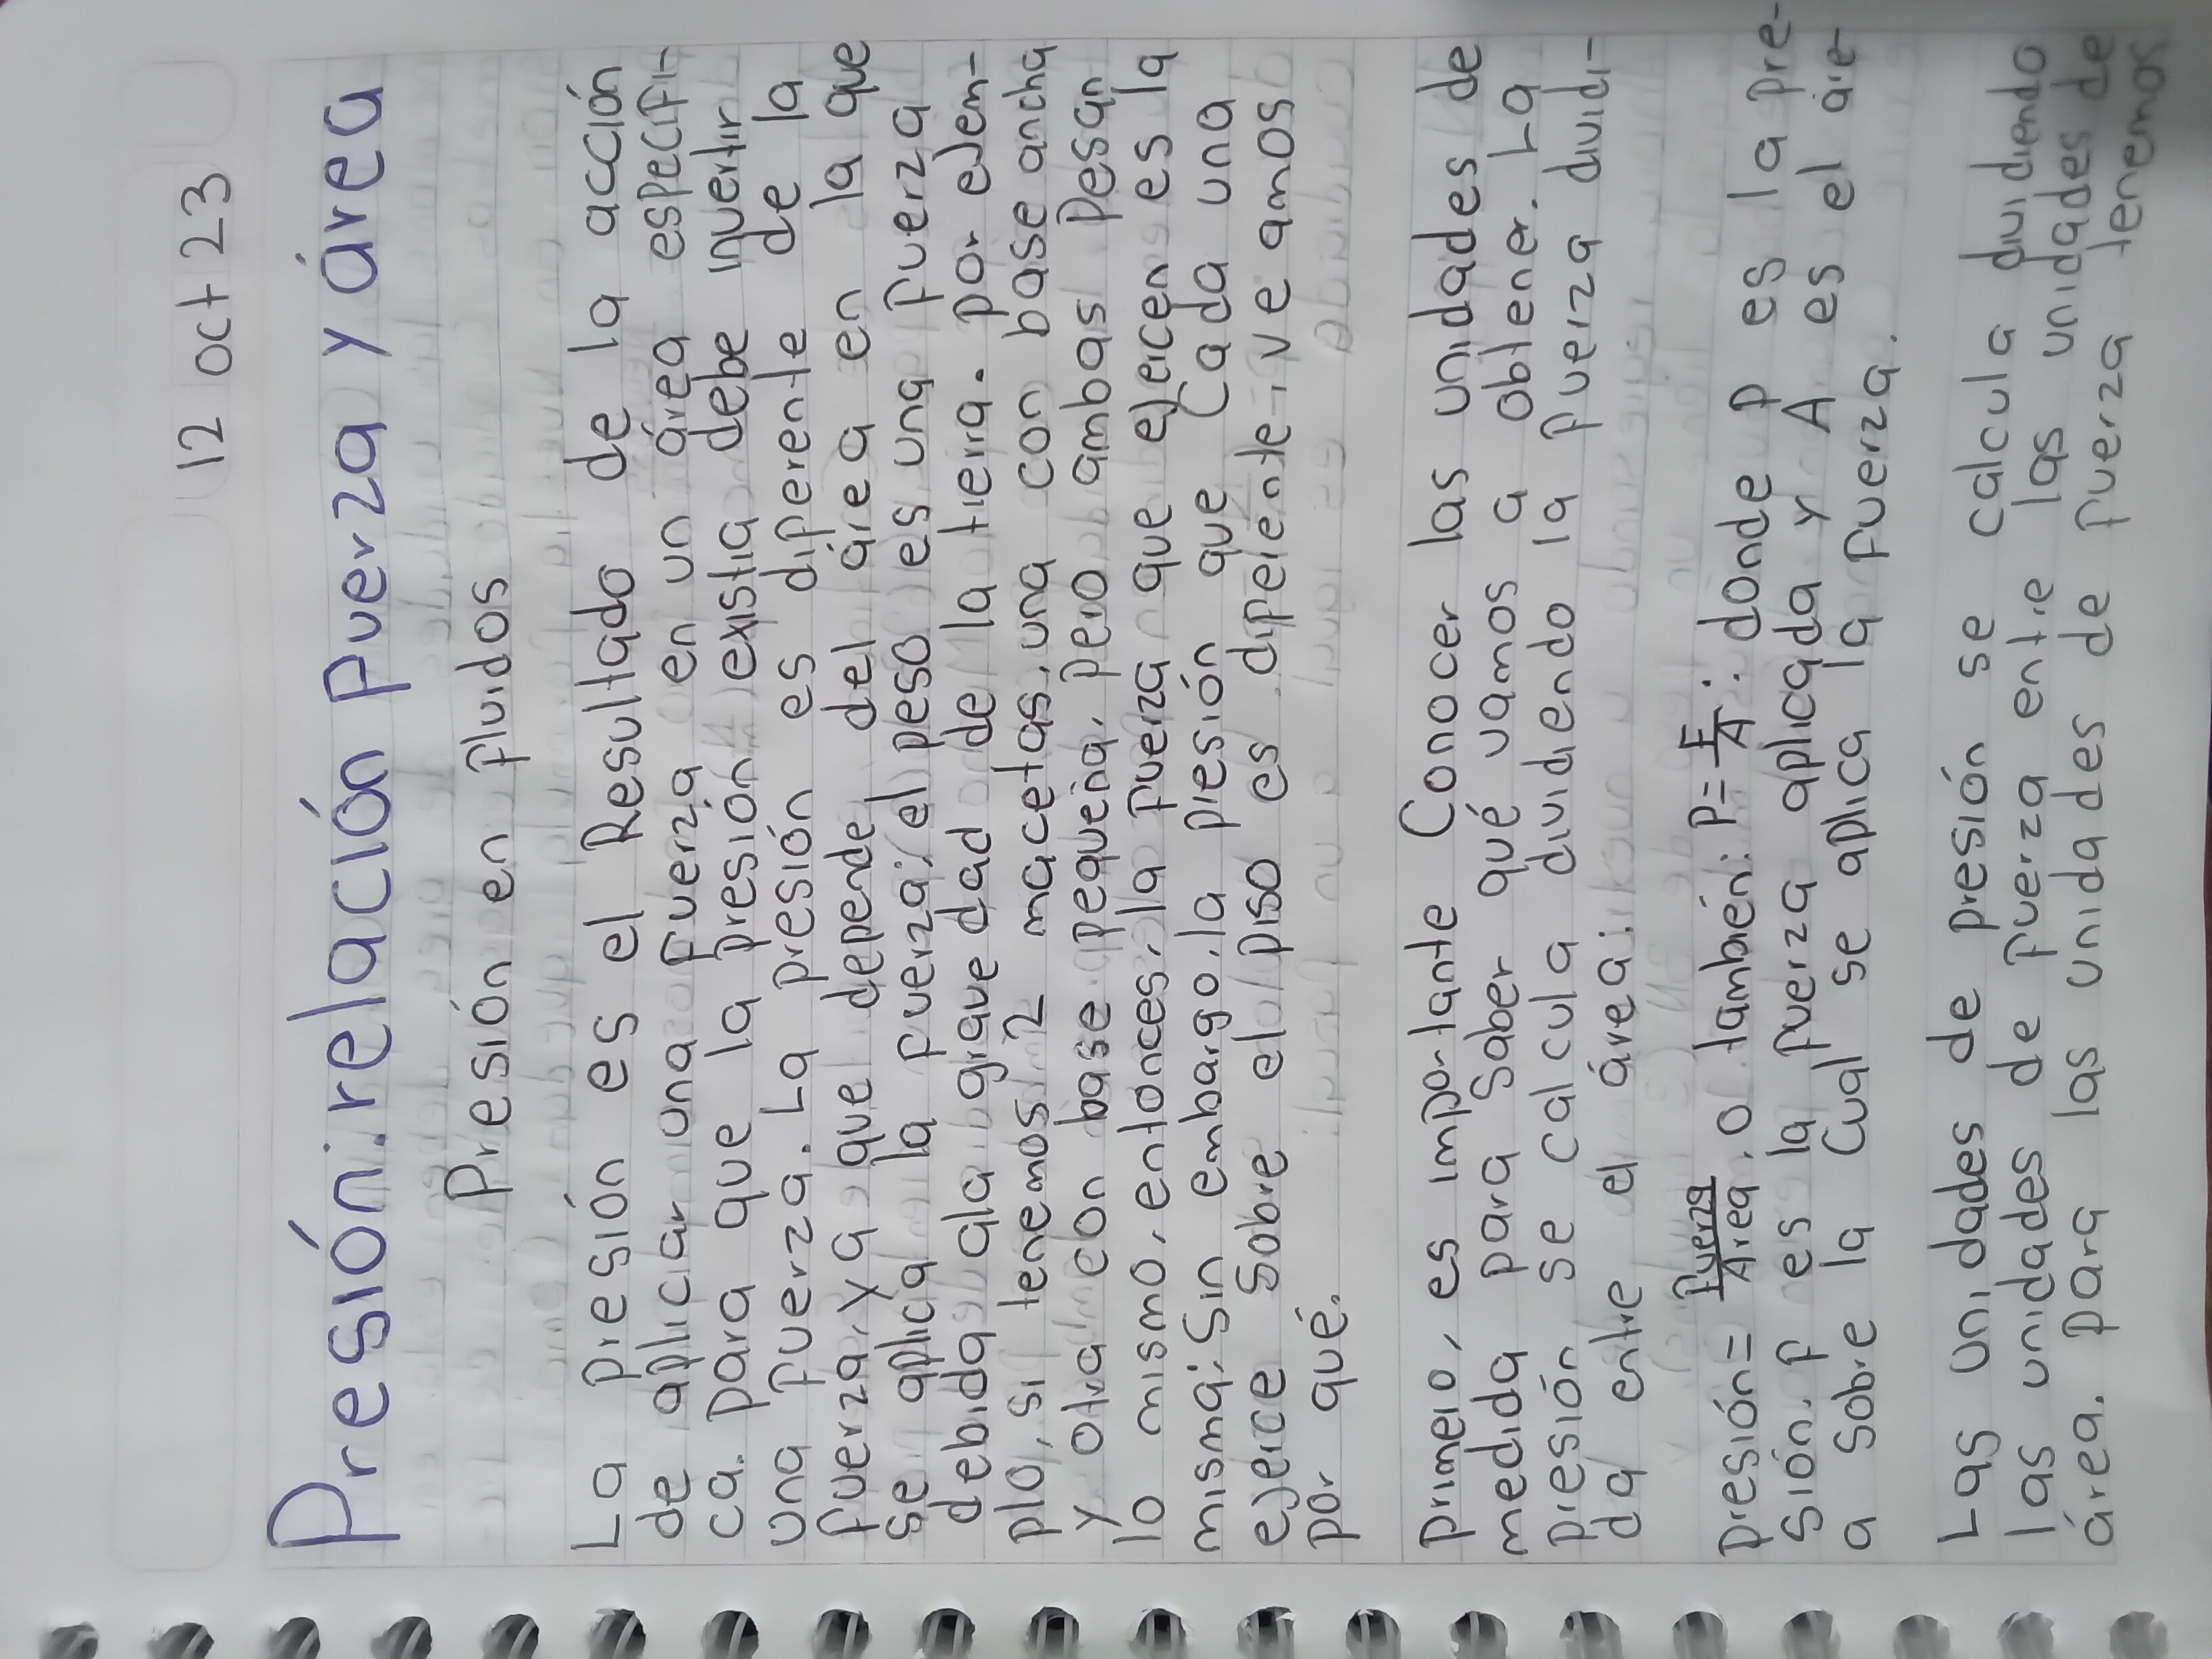 12 oct 23
Presión: relación Fuerza y área
Presión en Fluidos
La presión es el Resultado de la acción
de aplicar una Fuerza en un área específi-
ca. para que la presión existia debe invertir
una Fuerza. La presión es diferente de la
fuerza, ya que depende del área en la que
se aplica la fuerza; el peso es una fuerza
debida ala gravedad de la tierra. por ejem-
plo, si tenemos 2 macetas, una con base ancha
y otra con base pequeña, pero ambas pesan
lo mismo, entonces, la fuerza que ejercen es la
misma; Sin embargo, la presión que Cada una
ejerce Sobre el piso es diferente, ve amos
por qué.
primero, es importante Conocer las unidades de
medida para Saber qué vamos a obtener. La
presión se calcula dividiendo la fuerza dividi-
da entre el área:
presión= Fuerza/Area, o también: P= F/A : donde P es la pre-
sión. F es la fuerza aplicada y A es el áre-
a Sobre la Cual se aplica la Fuerza.
Las unidades de presión se calcula dividiendo
las unidades de fuerza entre las unidades de
área. para las unidades de fuerza tenemos